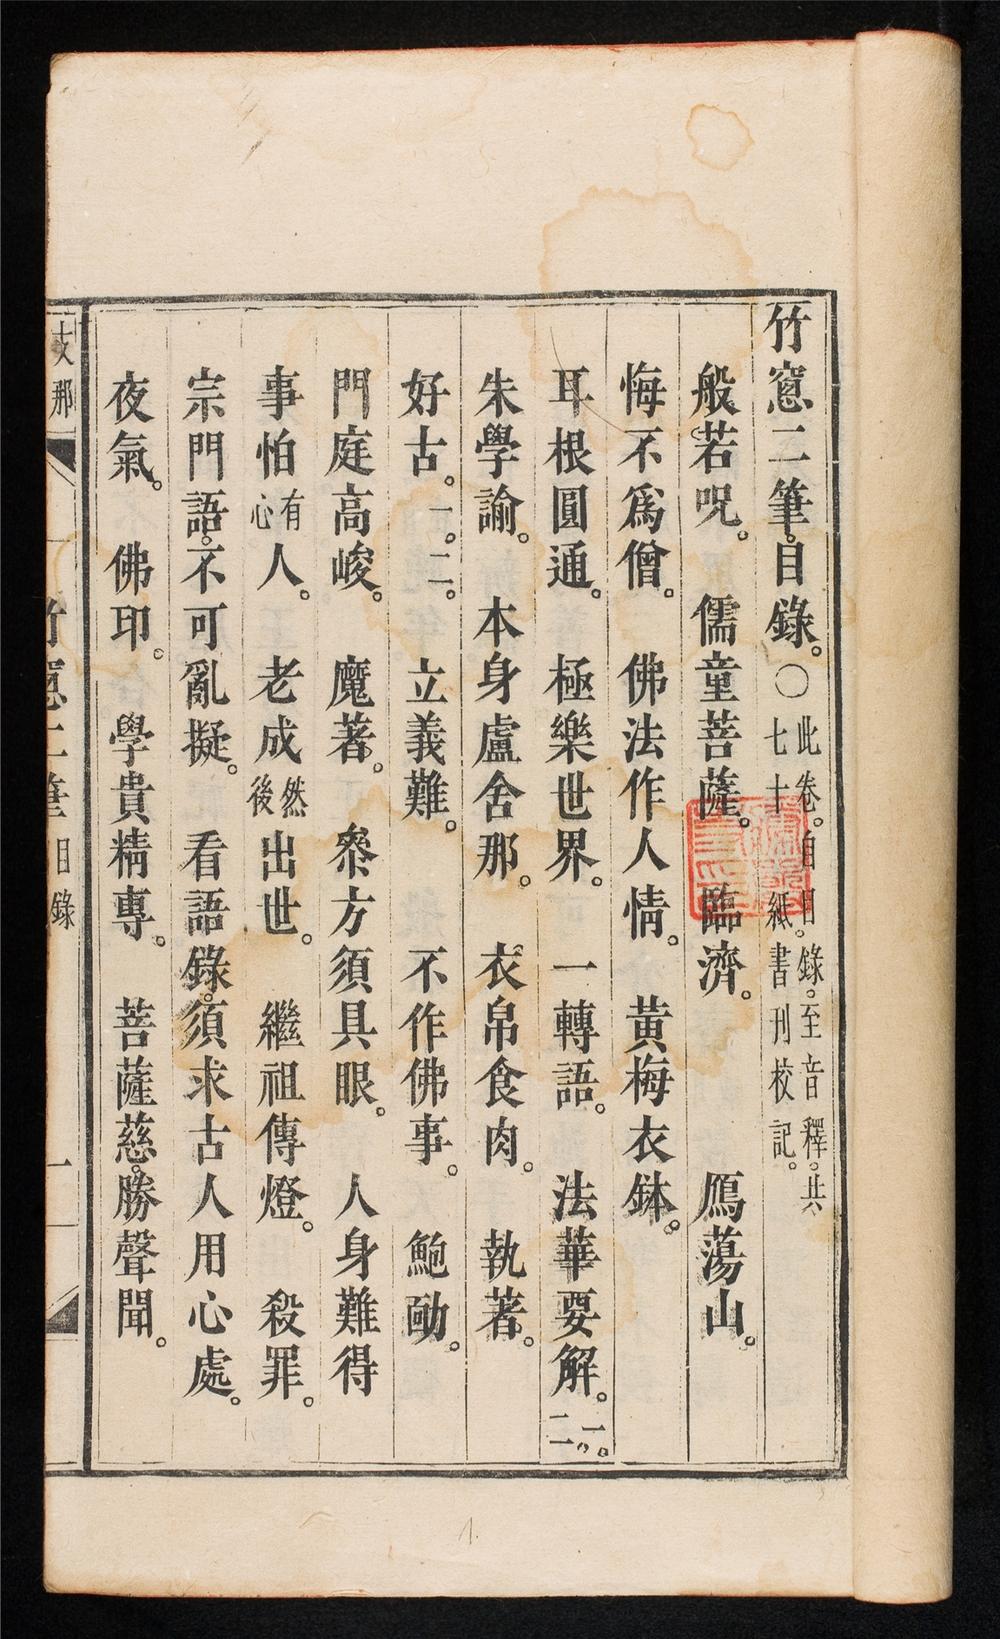 竹窓二筆目錄。〇此卷。自目錄。至音釋。共七十紙書刊校記。
般若呪。　儒童菩薩。　臨濟。　　　鴈蕩山。
悔不爲僧。　佛法作人情。　黃梅衣鉢。
耳根圓通。　極樂世界。　一轉語。　法華要解。一。二。
朱學諭。　本身盧舍那。　衣帛食肉。　執著。
好古。一。二。　立義難。　　不作佛事。　鮑勔。
門庭高峻。　魔著。　叅方須具眼。　人身難得
事怕有心人。　老成然後出世。　繼祖傳燈。　殺罪。
宗門語。不可亂擬。　看語錄。須求古人用心處。
夜氣。　佛印。　學貴精專。　菩薩慈勝聲聞。
支那　竹窓二筆　目錄　一
1.